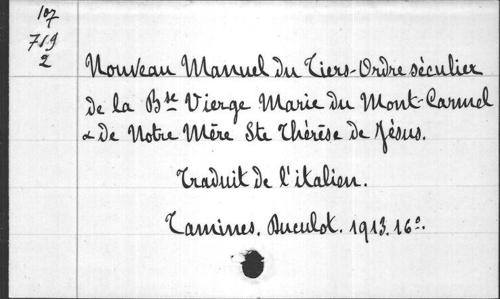 107
719
2
Nouveau Manuel du Tiers-Ordre séculier
de la Bse Vierge Marie du Mont-Carmel
& de Notre Mère Ste Thérèse de Jésus.
Traduit de l'italien.
Tamines. Duculot. 1913. 16º.